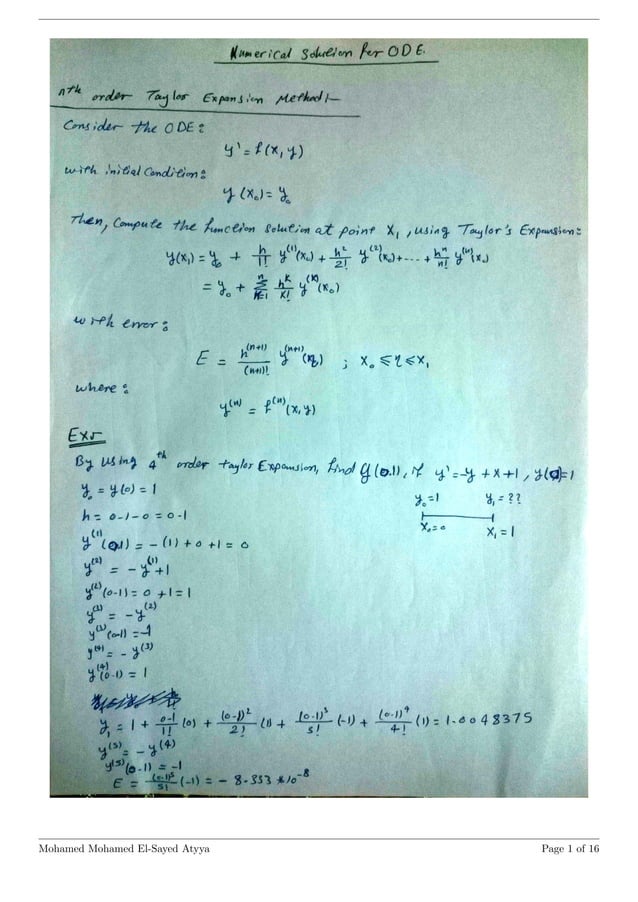 Numerical Solution for ODE.
nth order Taylor Expansion Method:-
Consider the ODE:
y' = f(x, y)
with initial Condition:
y(x₀) = y₀
Then, Compute the function solution at point x₁, using Taylor's Expansion:
y(x₁) = y₀ + h/1! y⁽¹⁾(x₀) + h²/2! y⁽²⁾(x₀) + ... + hⁿ/n! y⁽ⁿ⁾(x₀)
= y₀ + Σⁿₖ₌₁ hᵏ/k! y⁽ᵏ⁾(x₀)
with error:
E = h⁽ⁿ⁺¹⁾/(n+1)! y⁽ⁿ⁺¹⁾(η) ; x₀ ≤ η ≤ x₁
where:
y⁽ⁿ⁾ = f⁽ⁿ⁾(x, y)
Ex:-
By using 4th order taylor Expansion, find y(0.1), if y' = -y + x + 1, y(0) = 1
y₀ = y(0) = 1
y₀ = 1 y₁ = ??
x₀ = 0 x₁ = 1
h = 0.1 - 0 = 0.1
y⁽¹⁾(0.1) = -(1) + 0 + 1 = 0
y⁽²⁾ = -y⁽¹⁾ + 1
y⁽²⁾(0.1) = 0 + 1 = 1
y⁽³⁾ = -y⁽²⁾
y⁽³⁾(0.1) = -1
y⁽⁴⁾ = -y⁽³⁾
y⁽⁴⁾(0.1) = 1
y₁ = 1 + 0.1/1! (0) + (0.1)²/2! (1) + (0.1)³/3! (-1) + (0.1)⁴/4! (1) = 1.0048375
y⁽⁵⁾ = -y⁽⁴⁾
y⁽⁵⁾(0.1) = -1
E = (0.1)⁵/5! (-1) = -8.333 * 10⁻⁸
Mohamed Mohamed El-Sayed Atyya Page 1 of 16